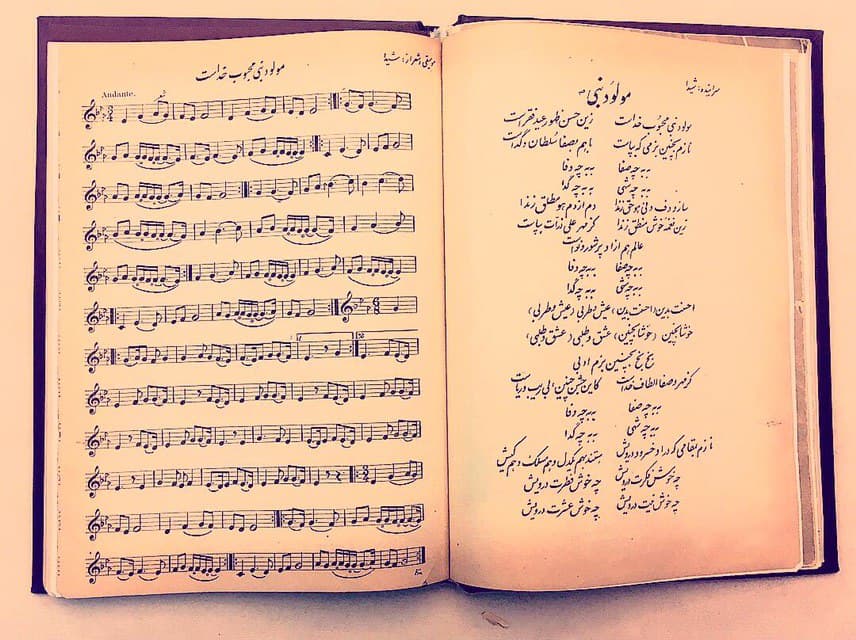 موسیقی و شعر از: شیدا
مولود نبی محبوب خداست
Andante.
سراینده: شیدا
مولود نبی
مولود نبی محبوب خداست زین حسن ظهور عید فقراست
نازم بچنین بزمی که بپاست باهم بصفا سلطان و گداست
به به چه صفا به به چه وفا
به به چه شهی به به چه گدا
ساز و دف و نی هو حق زندا دم از دم هو مطلق زندا
زین نغمه خوش منطق زندا کز مهر علی ذرات بپاست
عالم هم از او پر شور و نواست
به به چه صفا به به چه وفا
به به چه شهی به به چه گدا
احسنت بدین (احسنت بدین) عیش و طربی (عیش و طربی)
خوشا بچنین (خوشا بچنین) عشق و طلبی (عشق و طلبی)
بخ بخ بچنین بزم ادبی
کز مهر و صفا الطاف خداست کاین جشن چنین بی ریب و ریاست
به به چه صفا به به چه وفا
به به چه شهی به به چه گدا
نازم بمقامی که در او خسرو و درویش هستند بهم یکدل و هم مسلک و هم کیش
چه خوش فکرت درویش چه خوش فطرت درویش
چه خوش نیت درویش چه خوش عشرت درویش